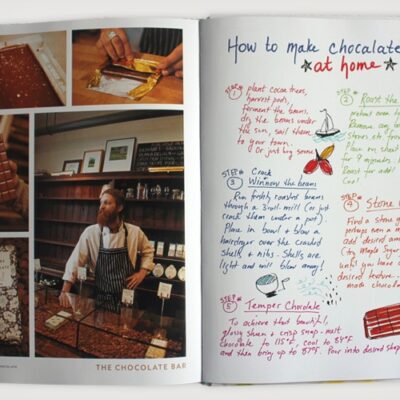 THE CHOCOLATE BAR
How to make chocolate
at home
STEP 1
plant cocoa trees,
harvest pods,
ferment the beans,
dry the beans under
the sun, sail them
to your town.
Or just buy some
2
Roast the
preheat oven
Remove any
Stones etc
Place on sheet
for 9 minutes
Roast for
Cool
STEP 3
Crack
Winnow the beans
Run freshly roasted beans
through a mill (or just
crack them under a pot).
Place in bowl + blow a
hairdryer over the cracked
shells + nibs. Shells are
light and will blow away!
Stone
Find a Stone
perhaps even a
add desired
(try maple sugar
until you have
desired texture
made chocolate
STEP 5
Temper Chocolate
To achieve that beautiful,
glossy sheen + crisp snap - melt
chocolate to 115°F, cool to 84°F
and then bring up to 87°F. Pour into desired shape